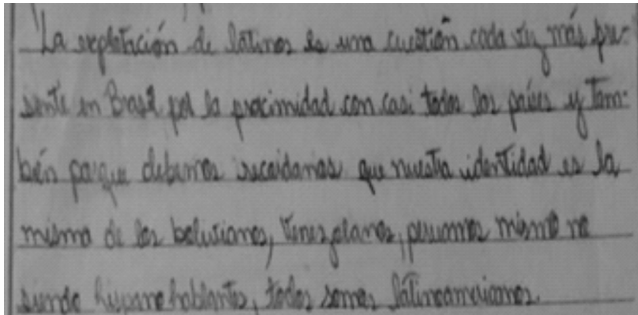 La explotación de latinos es una cuestión cada vez más pre-
sente en Brasil por la procimidad con casi todos los países y tam-
bén porque debemos recordarnos que nuestra identidad es la
misma de los bolivianos, venezolanos, peruanos mismo no
siendo hispanohablantes, todos somos latinoamericanos.